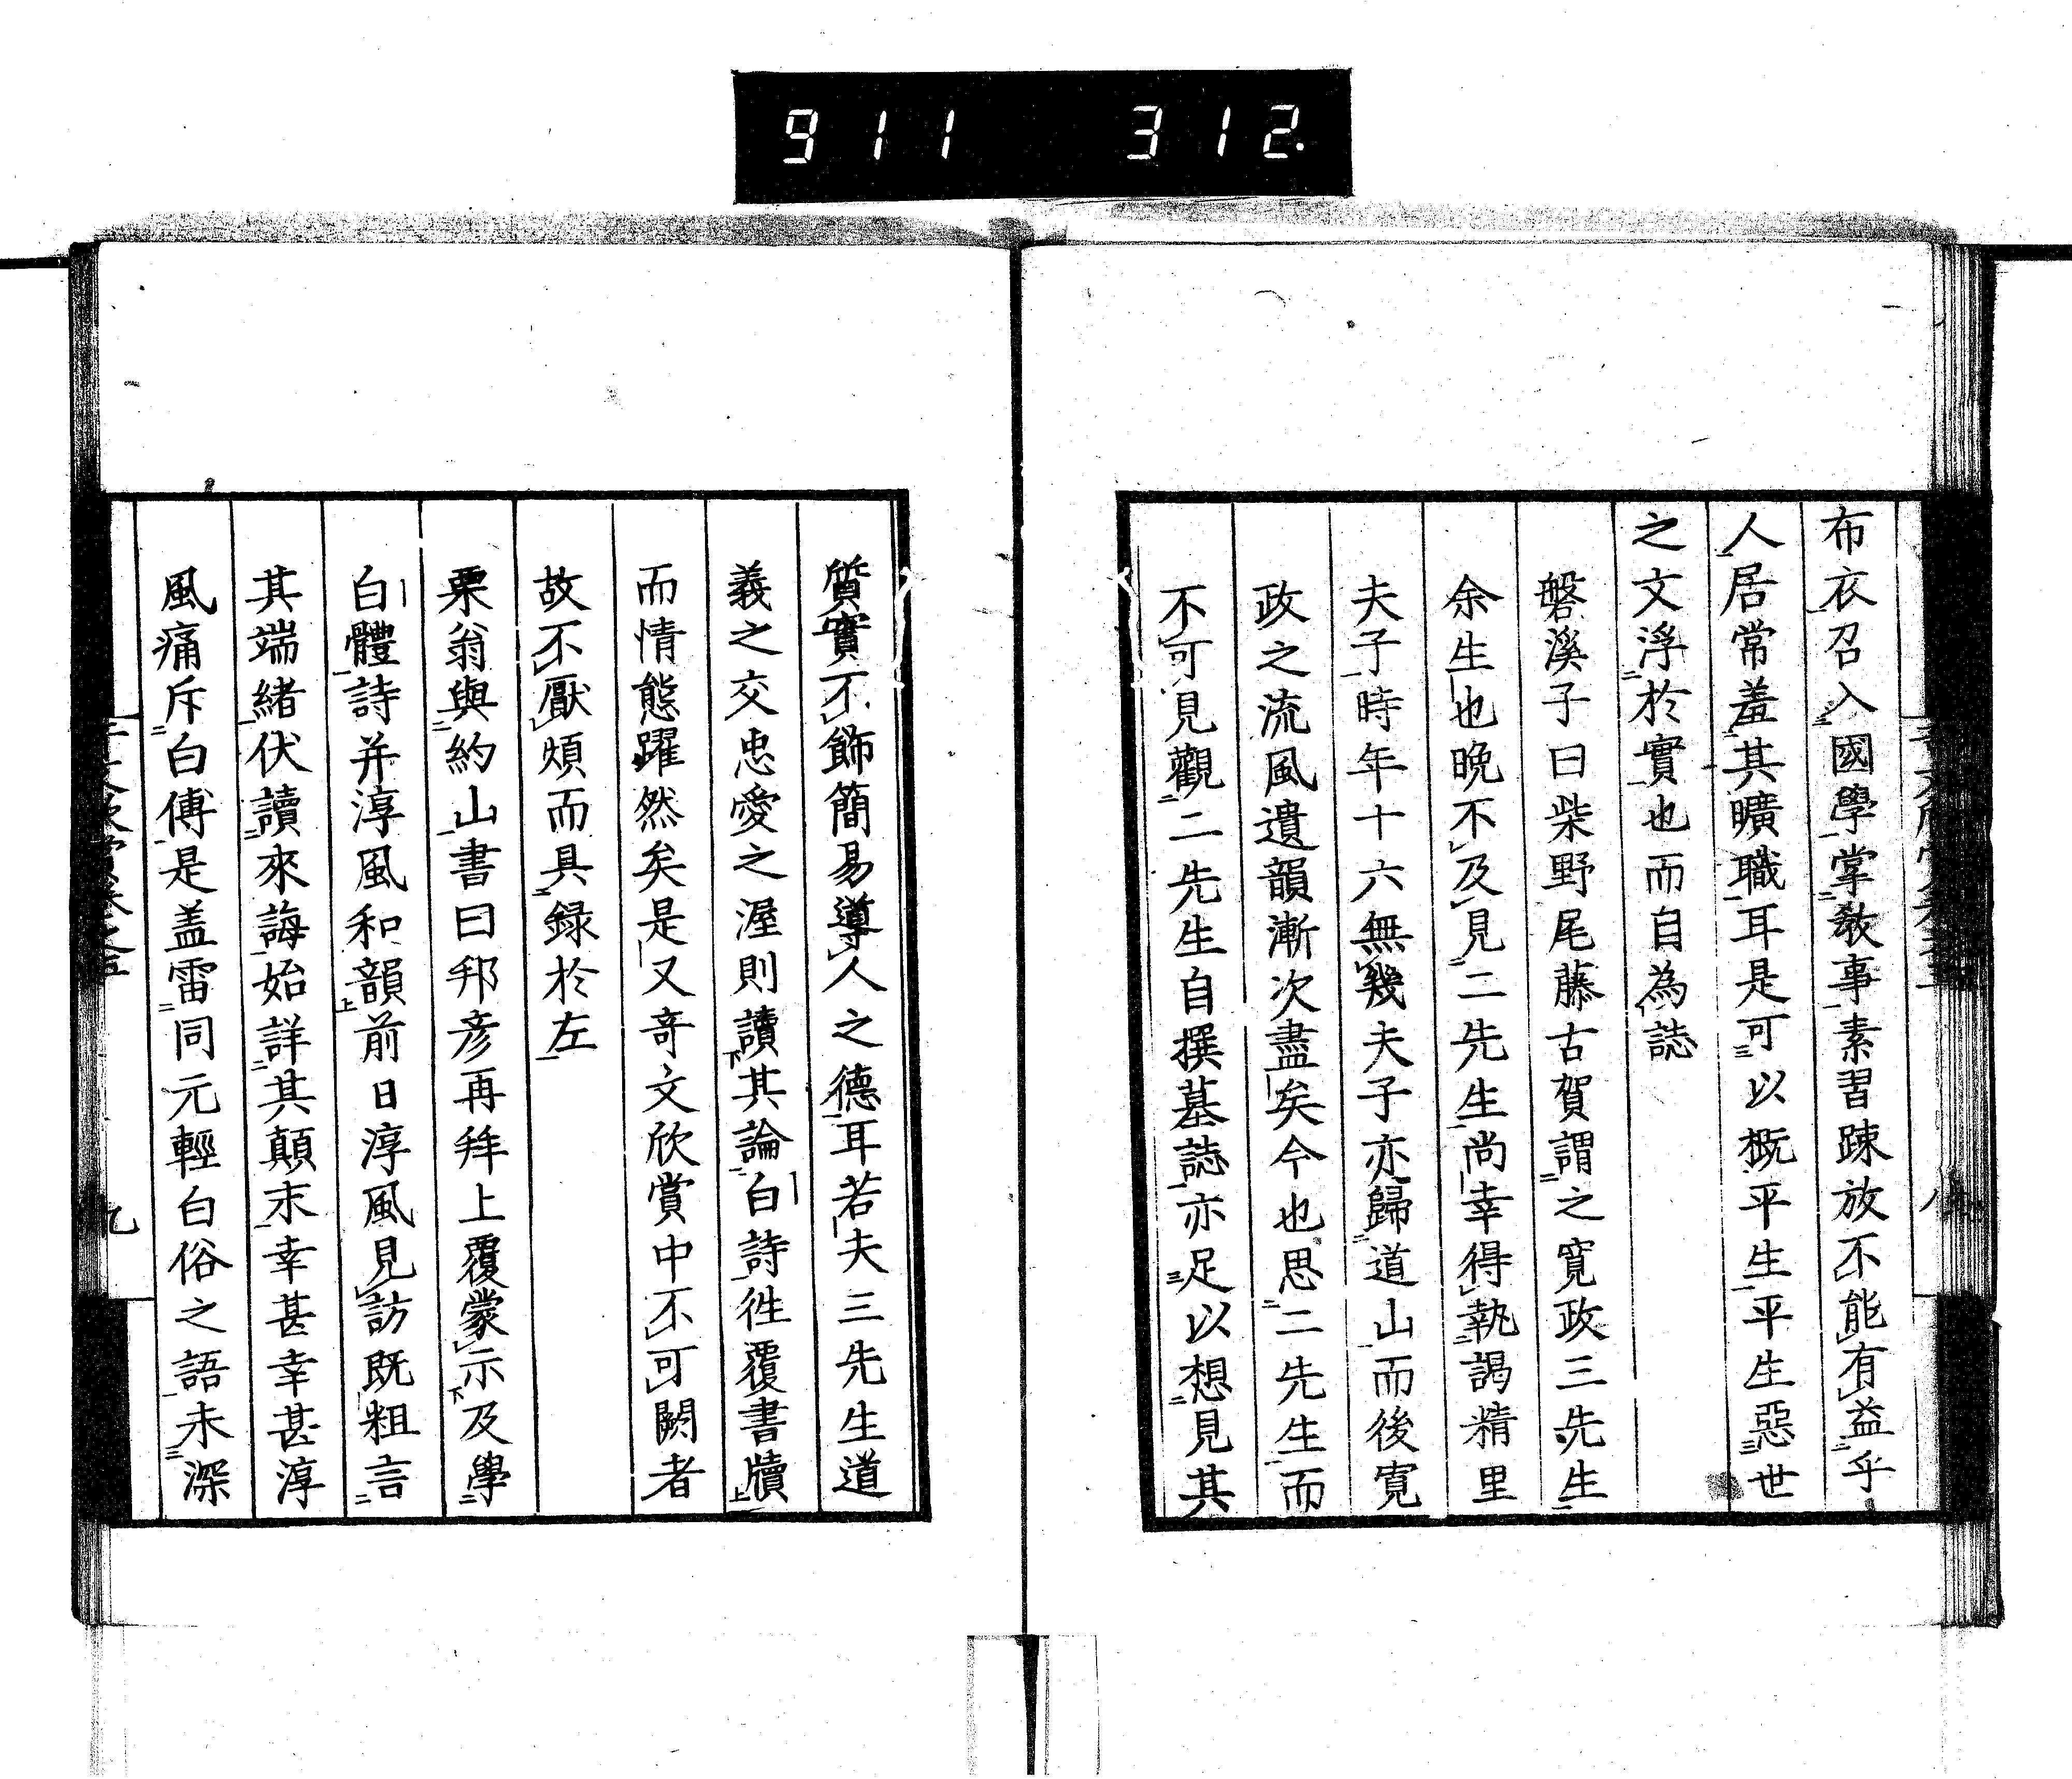 911 312.
布衣召入國學掌教事素習踈放不能有益乎
人居常羞其曠職耳是可以概平生平生惡世
之文浮於實也而自為誌
磐溪子曰柴野尾藤古賀謂之寬政三先生
余生也晚不及見二先生尚幸得執謁精里
夫子時年十六無幾夫子亦歸道山而後寬
政之流風遺韻漸次盡矣今也思二先生而
不可見觀二先生自撰墓誌亦足以想見其
質實不飾簡易導人之德耳若夫三先生道
義之交忠愛之渥則讀其論白詩徃覆書牘
而情態躍然矣是又竒文欣賞中不可闕者
故不厭煩而具録於左
栗翁與約山書曰邦彦再拜上覆蒙示及學
白體詩并淳風和韻前日淳風見訪既粗言
其端緒伏讀來誨始詳其顛末幸甚幸甚淳
風痛斥白傅是盖雷同元輕白俗之語未深
九